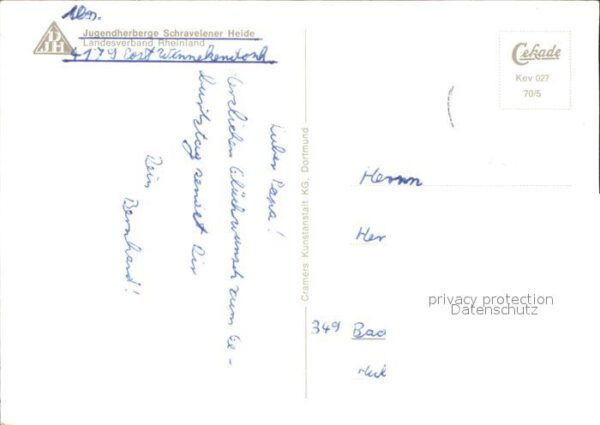 Abs.
DJH
Jugendherberge Schravelener Heide
Landesverband Rheinland
4179 Post Winnekendonk
Lieber Papa!
Herzlichen Glückwunsch zum Ge-
burtstag sendet Dir
Dein
Bernhard!
Cramers Kunstanstalt KG, Dortmund
Cekade
Kev 027
70/5
Herrn
Her
349 Bad
privacy protection
Datenschutz